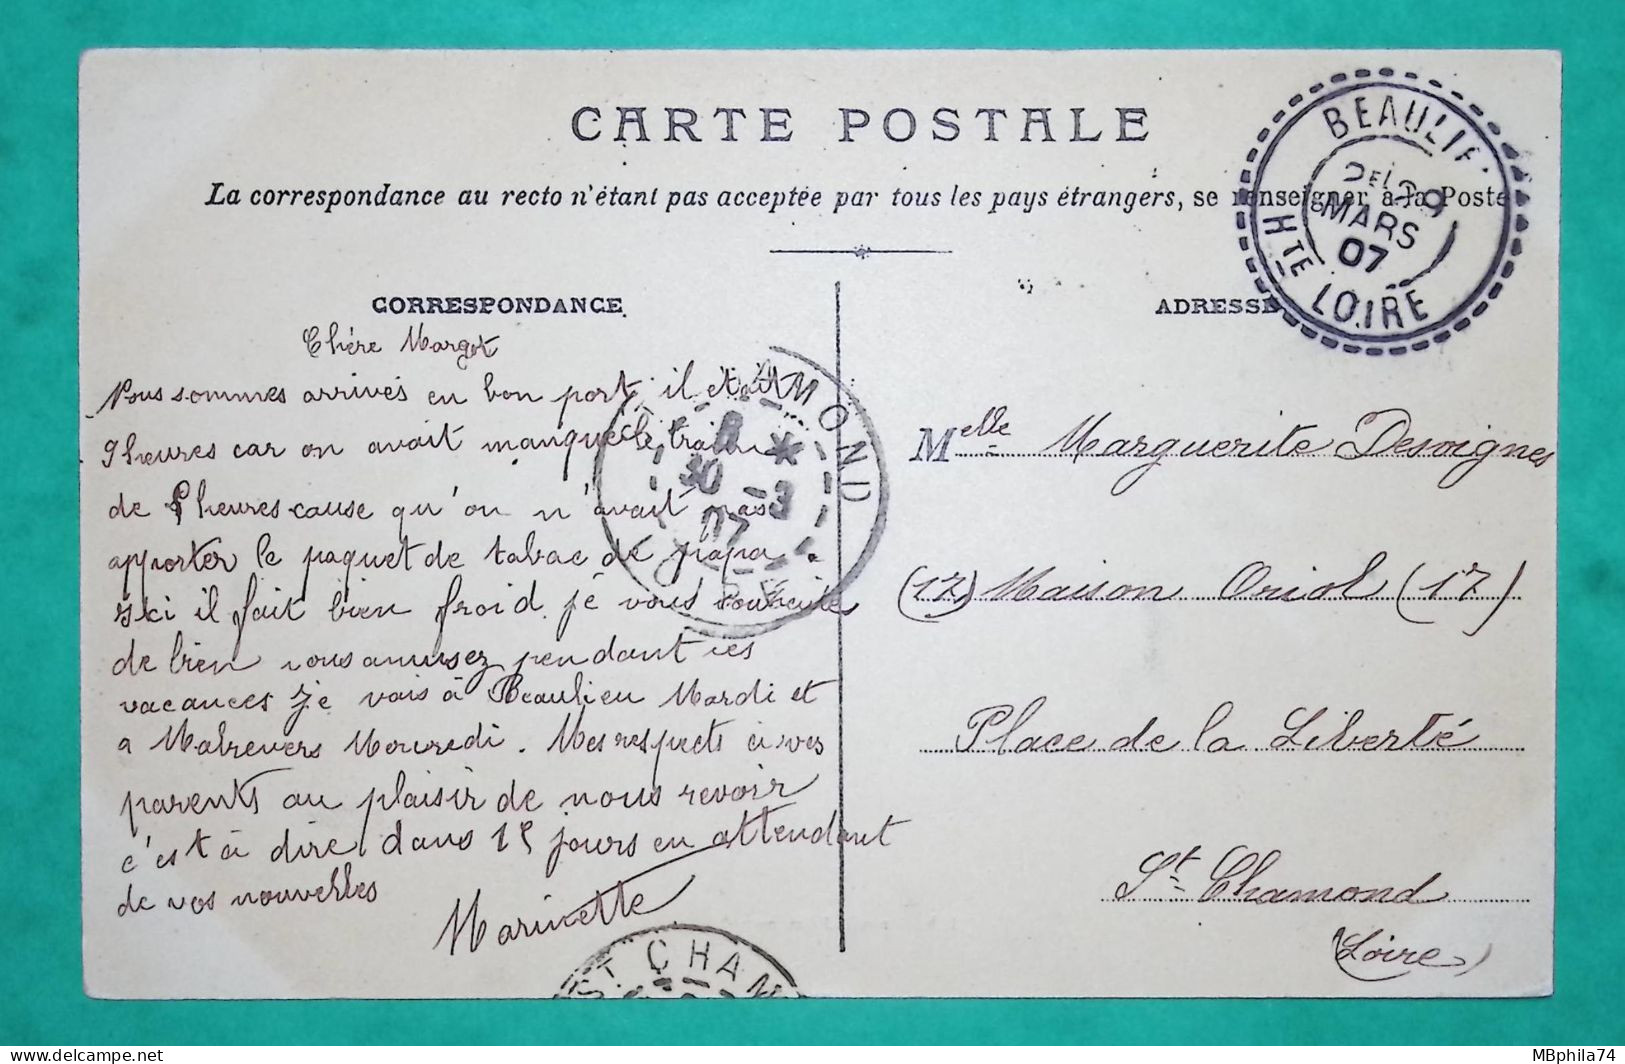 CARTE POSTALE
La correspondance au recto n'étant pas acceptée par tous les pays étrangers, se renseigner à la Poste
CORRESPONDANCE
Chère Margot
Nous sommes arrivés en bon port, il était
9 heures car on avait manqué le train
de heures cause qu'on n'avait pas
apporter le paquet de tabac de papa.
Ici il fait bien froid je vous souhaite
de bien vous amusez pendant ces
vacances Je vais à Beaulieu Mardi et
a Malrevers Mercredi. Mes respects à vos
parents au plaisir de nous revoir
c'est à dire dans 15 jours en attendant
de vos nouvelles
Marinette
ADRESSE
Melle Marguerite Desvignes
(17) Maison Oriol (17)
Place de la Liberté
St Chamond
(Loire)
BEAULIE
MARS
07
HTE LOIRE
AMOND
30 -3
07
ST CHAM
MBphila74